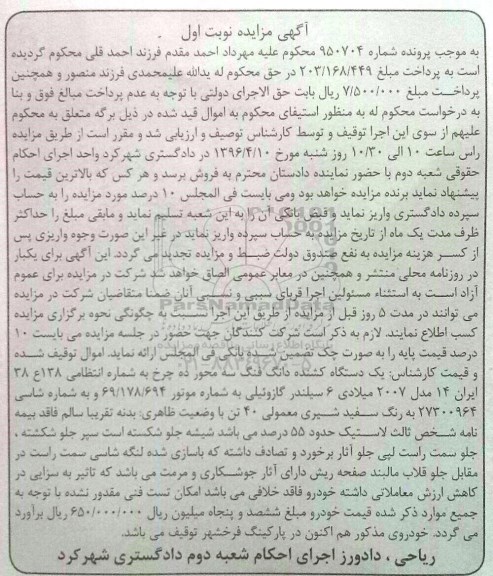 آگهی مزایده نوبت اول
به موجب پرونده شماره ۹۵۰۷۰۴ محکوم علیه مهرداد احمد مقدم فرزند احمد قلی محکوم گردیده
است به پرداخت مبلغ ۲۰۳/۱۶۸/۴۴۹ در حق محکوم له یدالله علیمحمدی فرزند منصور و همچنین
پرداخت مبلغ ۷/۵۰۰/۰۰۰ ریال بابت حق الاجرای دولتی با توجه به عدم پرداخت مبالغ فوق و بنا
به درخواست محکوم له به منظور استیفای محکوم به اموال قید شده در ذیل برگه متعلق به محکوم
علیهم از سوی این اجرا توقیف و توسط کارشناس توصیف و ارزیابی شد و مقرر است از طریق مزایده
راس ساعت ۱۰ الی ۱۰/۳۰ روز شنبه مورخ ۱۳۹۶/۴/۱۰ در دادگستری شهرکرد واحد اجرای احکام
حقوقی شعبه دوم با حضور نماینده دادستان محترم به فروش برسد و هر کس که بالاترین قیمت را
پیشنهاد نماید برنده مزایده خواهد بود ومی بایست فی المجلس ۱۰ درصد مورد مزایده را به حساب
سپرده دادگستری واریز نماید و قبض بانکی آن را به این شعبه تسلیم نماید و مابقی مبلغ را حداکثر
ظرف مدت یک ماه از تاریخ مزایده به حساب سپرده واریز نماید در غیر این صورت وجوه واریزی پس
از کسر هزینه مزایده به نفع صندوق دولت ضبط و مزایده تجدید می گردد. این آگهی برای یکبار
در روزنامه محلی منتشر و همچنین در معابر عمومی الصاق خواهد شد شرکت در مزایده برای عموم
آزاد است به استثناء مسئولین اجرا قربای سببی و نسبی آنان ضمنا متقاضیان شرکت در مزایده
می توانند در مدت ۵ روز قبل از مزایده از طریق این اجرا نسبت به چگونگی نحوه برگزاری مزایده
کسب اطلاع نمایند. لازم به ذکر است شرکت کنندگان جهت حضور در جلسه مزایده می بایست ۱۰
درصد قیمت پایه را به صورت چک تضمین شده بانکی فی المجلس ارائه نماید. اموال توقیف شده
و قیمت کارشناس: یک دستگاه کشنده دانگ فنگ ۳ محور ده چرخ به شماره انتظامی ۱۳۸ع ۳۸
ایران ۱۴ مدل ۲۰۰۷ میلادی ۶ سیلندر گازوئیلی به شماره موتور ۶۹/۱۷۸/۶۹۴ و به شماره شاسی
۲۷۳۰۰۹۶۴ به رنگ سفید شیری معمولی ۴۰ تن با وضعیت ظاهری: بدنه تقریبا سالم فاقد بیمه
نامه شخص ثالث لاستیک حدود ۵۵ درصد می باشد شیشه جلو شکسته است سپر جلو شکشته ،
جلو سمت راست لپی جلو آثار برخورد و تصادف داشته که باسازی شده لنگه شاسی سمت راست در
مقابل جلو قلاب مالبند صفحه ریش دارای آثار جوشکاری و مرمت می باشد که تاثیر به سزایی در
کاهش ارزش معاملاتی داشته خودرو فاقد خلافی می باشد امکان تست فنی مقدور نشده با توجه به
جمیع موارد ذکر شده قیمت خودرو مبلغ ششصد و پنجاه میلیون ریال ۶۵۰/۰۰۰/۰۰۰ ریال برآورد
می گردد. خودروی مذکور هم اکنون در پارکینگ فرخشهر توقیف می باشد.
ریاحی ، دادورز اجرای احکام شعبه دوم دادگستری شهرکرد
ParsNamadData